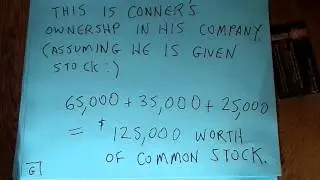 THIS IS CONNER'S
OWNERSHIP IN HIS COMPANY.
(ASSUMING HE IS GIVEN
STOCK:)
65,000 + 35,000 + 25,000
= $125,000 WORTH
OF COMMON STOCK.
6